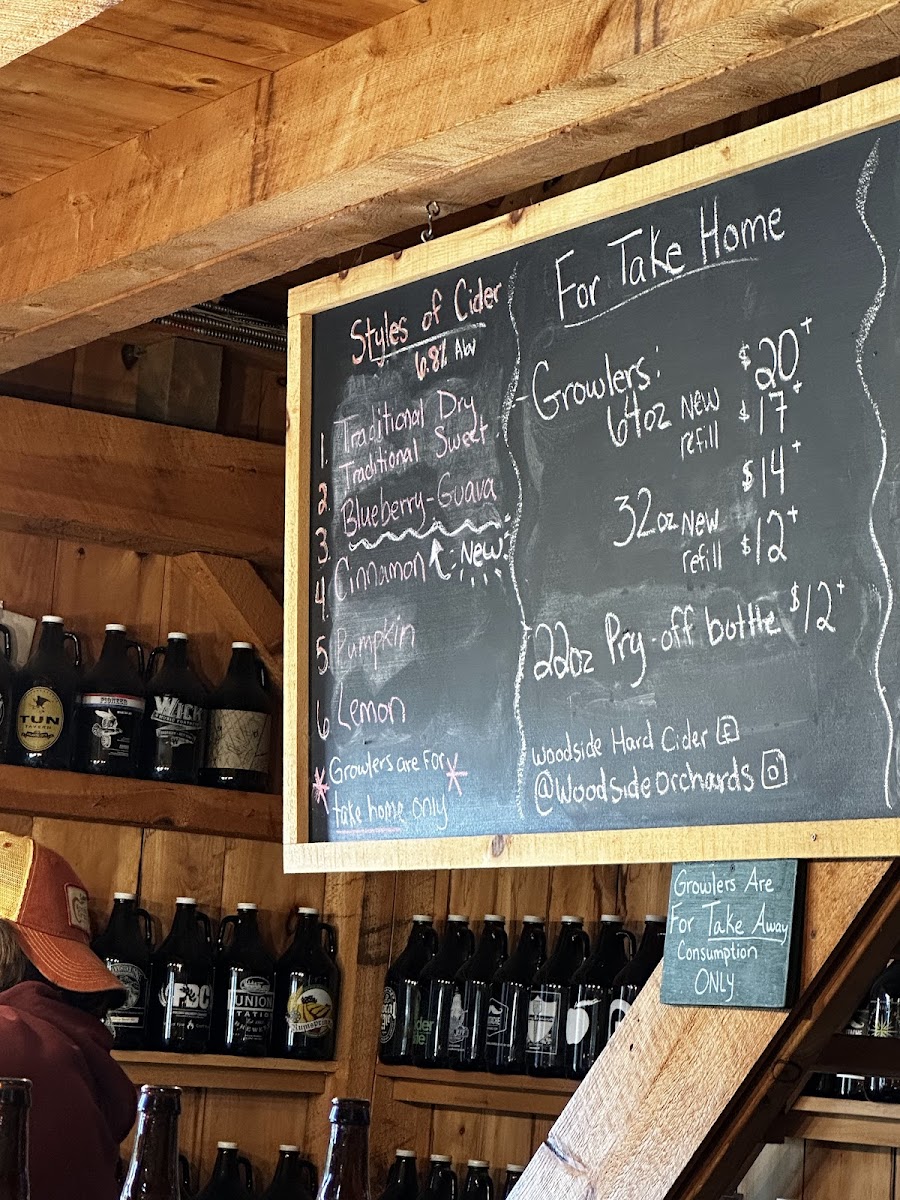 Styles of Cider
6.8% ABV
1. Traditional Dry
2. Traditional Sweet
3. Blueberry-Guava
4. Cinnamon New
5. Pumpkin
6 Lemon
Growlers are For
take home only
For Take Home
-Growlers:
64oz New $20+
refill $17+
32oz New $14+
refill $12+
22oz Pry-off bottle $12+
Woodside Hard Cider
@WoodsideOrchards
Growlers Are
For Take Away
Consumption
ONLY
TUN
TAVERN
PIONEER
WICK
UNION
STATION